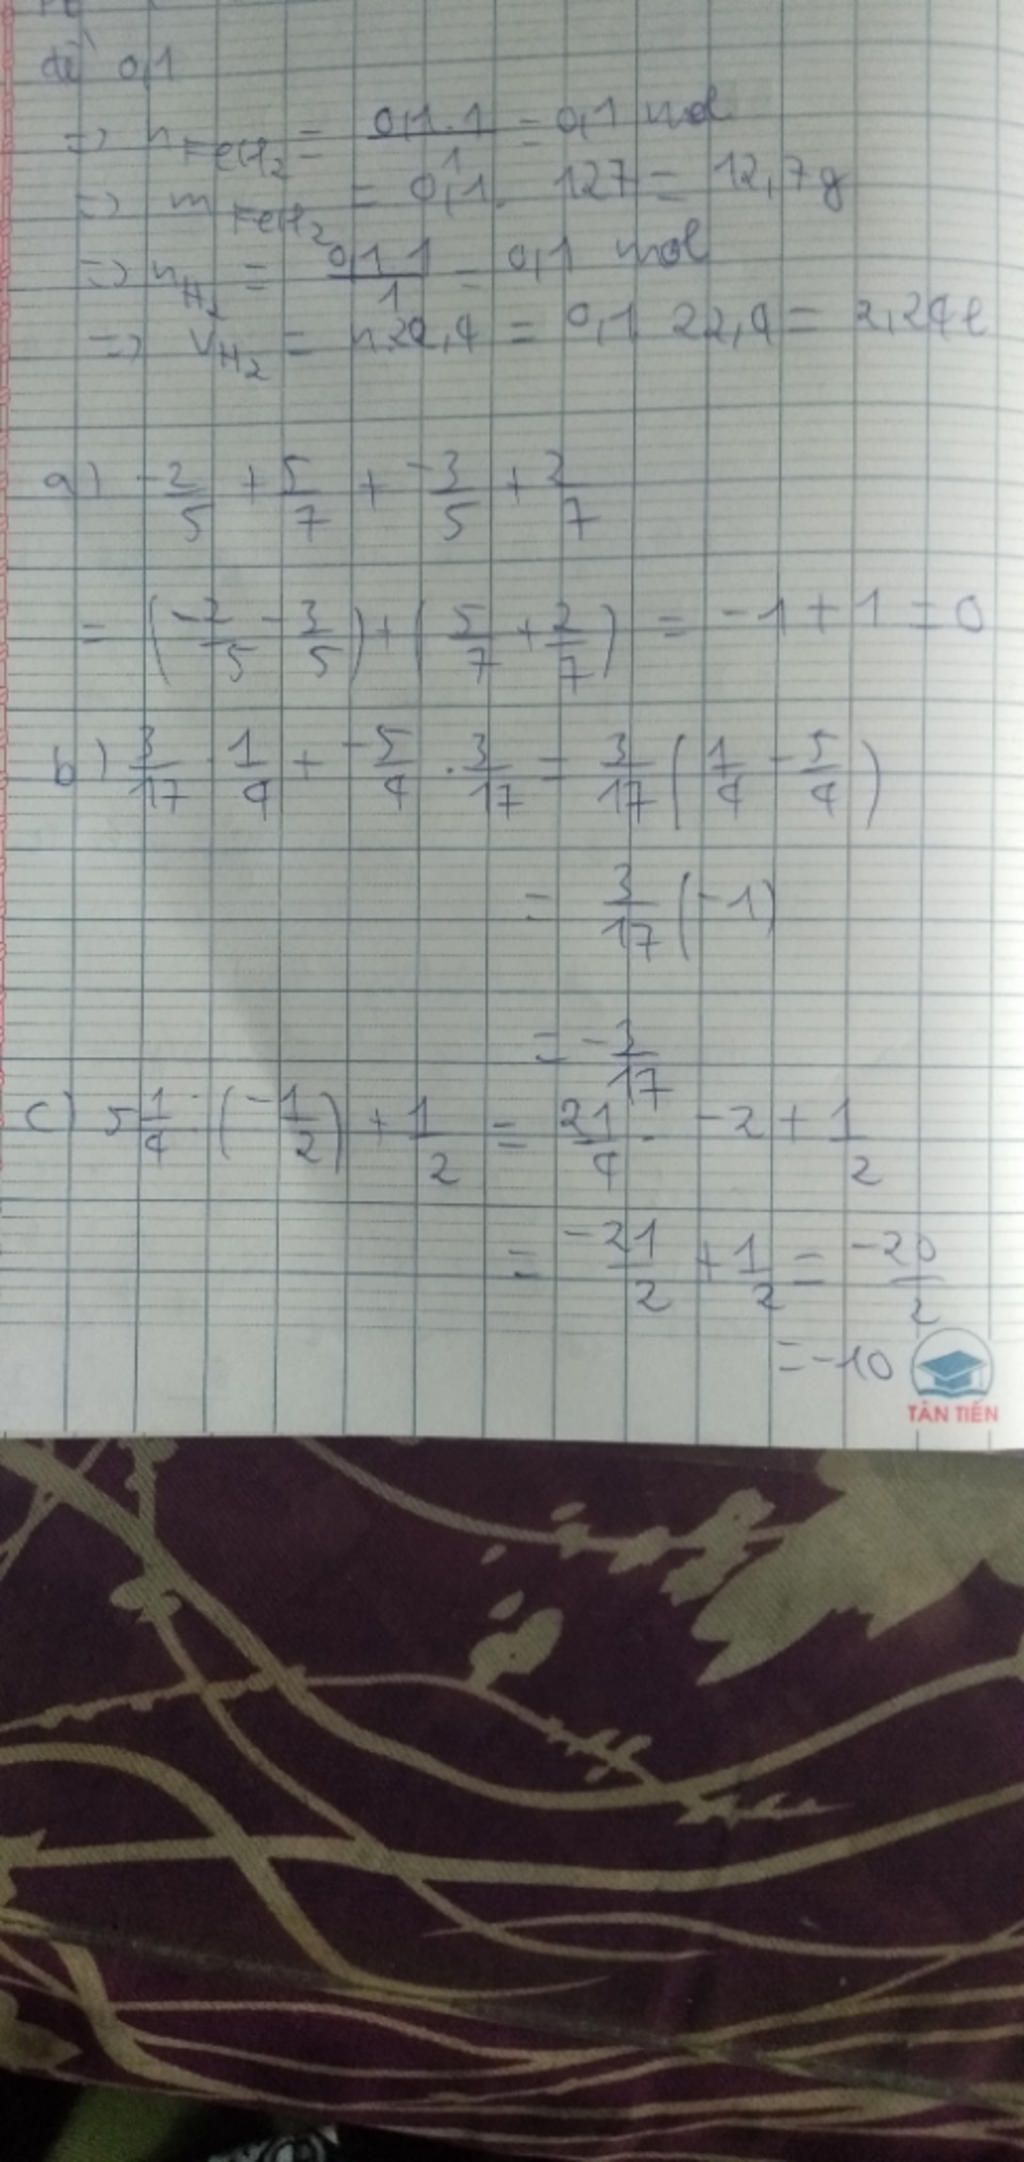 đề 0,1
=> nFeCl2 = 0,1.1/1 = 0,1 mol
=> mFeCl2 = 0,1. 127 = 12,7g
=> nH2 = 0,1.1/1 = 0,1 mol
=> VH2 = n.22,4 = 0,1 22,4 = 2,24l
a) -2/5 + 5/7 + -3/5 + 2/7
= (-2/5 - 3/5) + (5/7 + 2/7) = -1 + 1 = 0
b) 3/17 . 1/4 + -5/4 . 3/17 = 3/17 (1/4 - 5/4)
= 3/17 (-1)
= -3/17
c) 5 1/4 : (-1/2) + 1/2 = 21/4 . -2 + 1/2
= -21/2 + 1/2 = -20/2
= -10
TÂN TIẾN